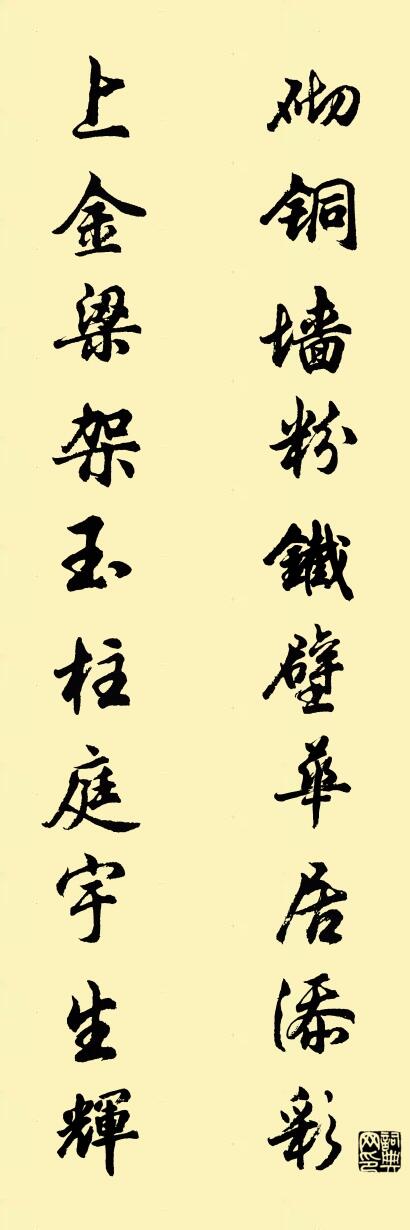 砌铜墙粉鐵壁華居添彩
上金梁架玉柱庭宇生輝
詞典网印